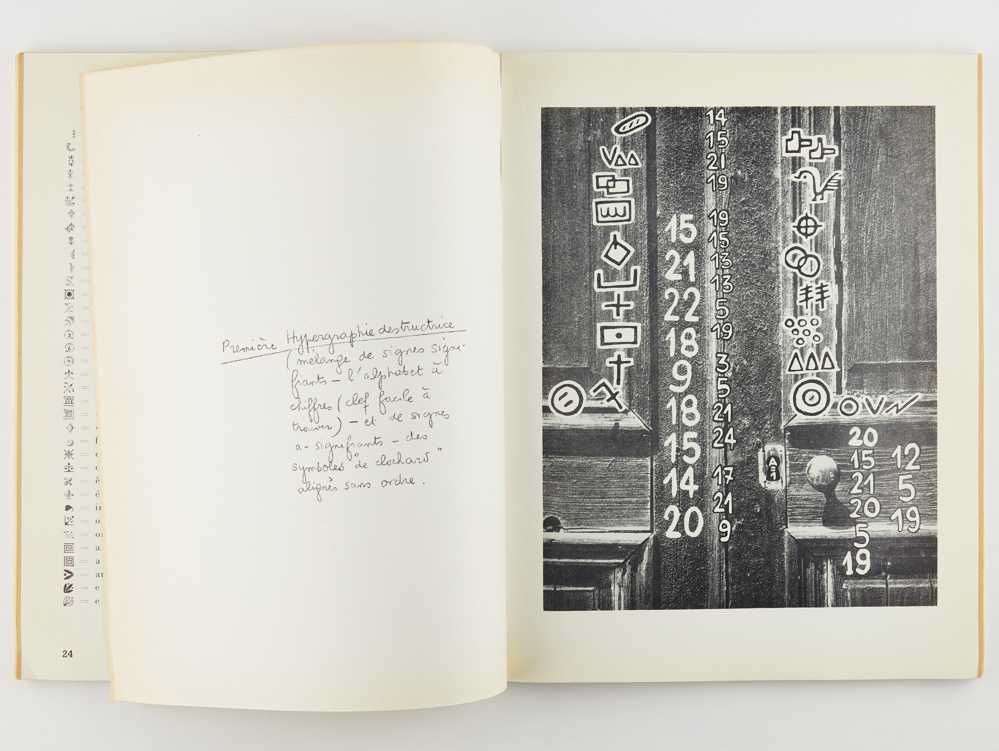 24
Première Hypergraphie destructrice
(mélange de signes signi-
fiants – l'alphabet à
chiffres (clef facile à
trouver) – et de signes
a-signifiants – des
symboles "de clochard"
alignés sans ordre.
14
15
21
19
19
15
13
13
5
19
3
5
21
24
17
21
9
15
21
22
18
9
18
15
14
20
20
15
21
20
5
19
12
5
19